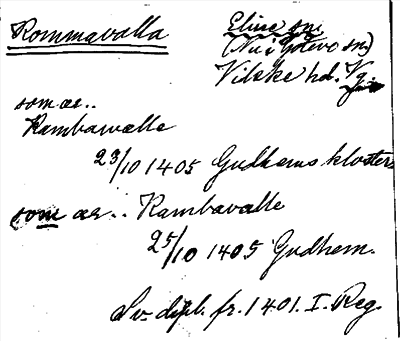 Rommavalla
Eline sn.
(Nu i Götevo sn)
Vilske hd. Vg.
som æ..
Rambawalle
23/10 1405 Gudhems kloster
som æ.. Rambavalle
25/10 1405 Gudhem.
Sv. dipl. fr. 1401. I. Reg.